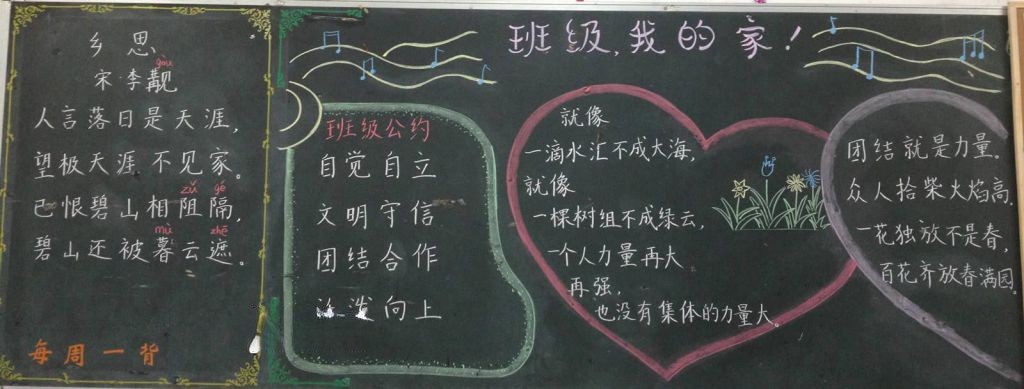 乡思
gòu
宋·李觏
人言落日是天涯,
望极天涯不见家。
zǔ gé
已恨碧山相阻隔,
mù zhē
碧山还被暮云遮。
每周一背
班级,我的家!
班级公约
自觉自立
文明守信
团结合作
活泼向上
就像
一滴水汇不成大海,
就像
一棵树组不成绿云,
一个人力量再大
再强,
也没有集体的力量大。
团结就是力量。
众人拾柴火焰高.
一花独放不是春,
百花齐放春满园.